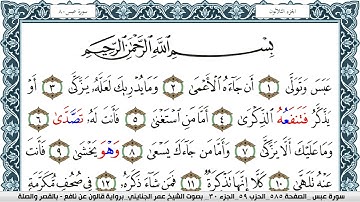 الجزء الثلاثون
سورة عبس ٨٠
بِسْمِ اللَّهِ الرَّحْمَٰنِ الرَّحِيمِ
عَبَسَ وَتَوَلَّىٰ ١ أَن جَآءَهُ الْأَعْمَىٰ ٢ وَمَا يُدْرِيكَ لَعَلَّهُ يَزَّكَّىٰ ٣ أَوْ
يَذَّكَّرُ فَتَنفَعُهُ الذِّكْرَىٰ ٤ أَمَّا مَنِ اسْتَغْنَىٰ ٥ فَأَنتَ لَهُ تَصَّدَّىٰ ٦
وَمَا عَلَيْكَ أَلَّا يَزَّكَّىٰ ٧ وَأَمَّا مَن جَآءَكَ يَسْعَىٰ ٨ وَهْوَ يَخْشَىٰ ٩ فَأَنتَ
عَنْهُ تَلَهَّىٰ ١٠ كَلَّا إِنَّهَا تَذْكِرَةٌ ١١ فَمَن شَآءَ ذَكَرَهُ ١٢ فِي صُحُفٍ مُّكَرَّمَةٍ
سورة عبس . الصفحة ٥٨٥ الحزب ٥٩ الجزء ٣٠ . بصوت الشيخ عمر الجنايني . برواية قالون عن نافع - بالقصر والصلة